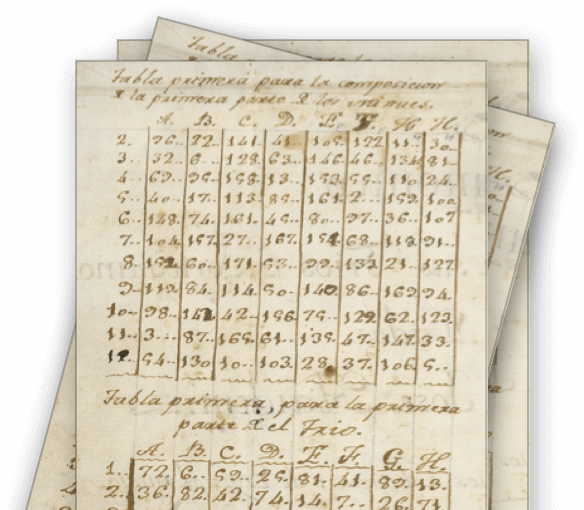 Tabla primera para la composicion
de la primera parte de los minues.
A. B. C. D. E. F. H. H.
2. 96.. 22.. 141. 41.. 105. 122 11.. 30..
3.. 32.. 6... 128. 63.. 146. 46.. 134. 81..
4.. 69.. 95.. 158 13... 153. 55.. 110 24..
5... 40.. 17.. 113. 85.. 161. 2... 159. 100.
6.. 148. 74.. 161. 45.. 80.. 97.. 36.. 107
7.. 104. 157. 27.. 167. 154 68.. 118. 91..
8. 152. 60.. 171. 53.. 99. 133. 21.. 127
9.. 119. 84.. 114. 50.. 140 86.. 169. 94.
10.. 98.. 142. 42.. 156 75.. 129. 62. 123.
11.. 3... 87.. 165. 61.. 135. 47.. 147. 33.
12. 54.. 130 10.. 103. 28. 37. 106. 5..
Tabla primera, para la primera
parte de el Trio.
A. B. C. D. E. F. G. H.
1.. 72. 6.. 59. 25. 81. 41. 89. 13.
2.. 36. 82. 42. 74. 14. 7.. 26. 71
Tabla